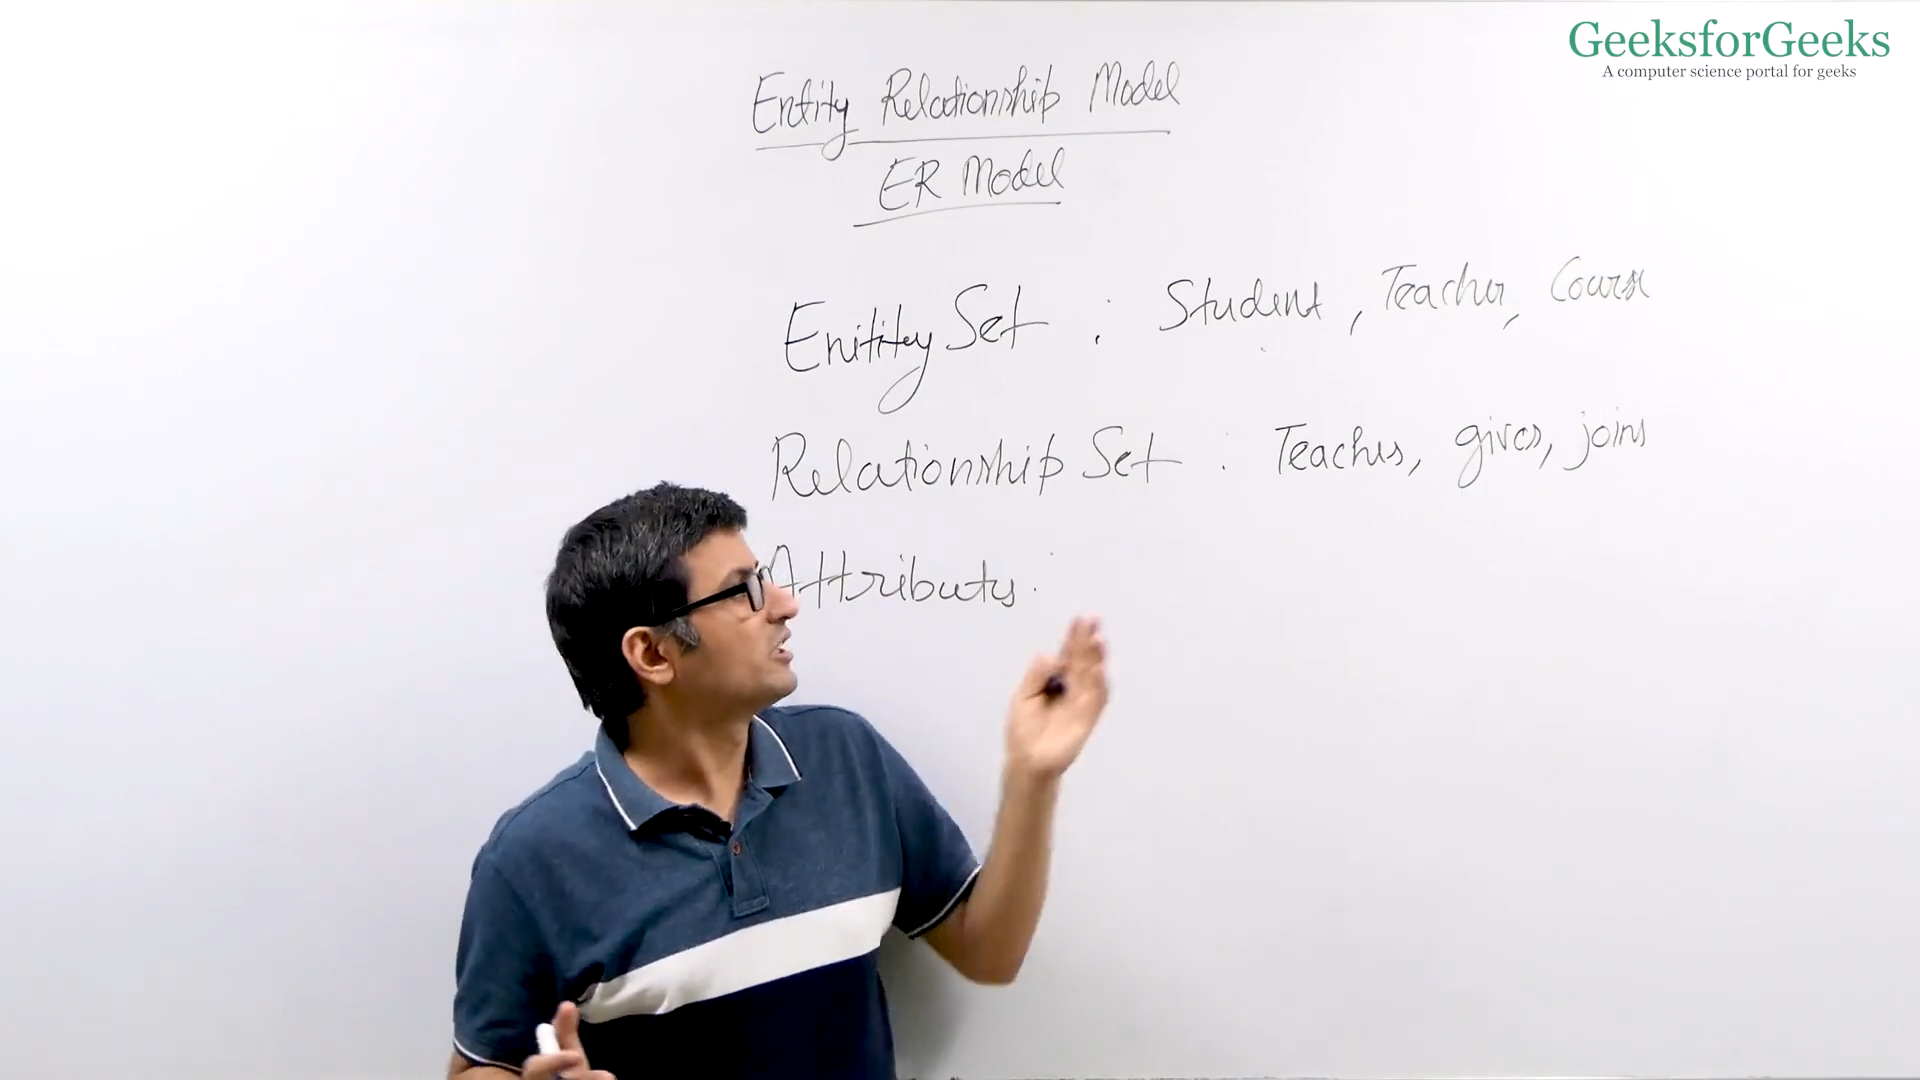 GeeksforGeeks
A computer science portal for geeks
Entity Relationship Model
ER Model
Enitity Set : Student, Teacher, Course
Relationship Set : Teaches, gives, joins
Attributes :